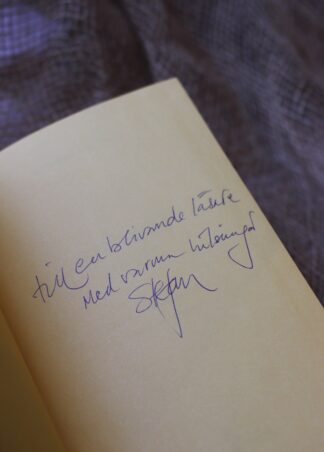 till en blivande läsare
med varma hälsningar
Stefan